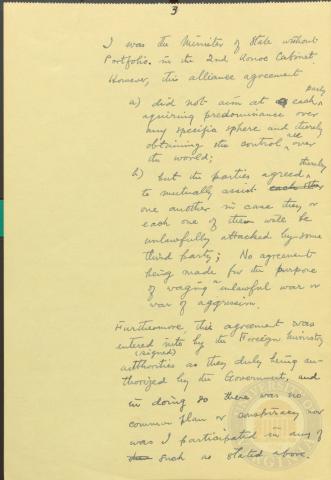 3
I was the Minister of State without
Portfolio in the 2nd Konoe Cabinet.
However, this alliance agreement
party
a) did not aim at each
aquiring predominance over
any specific sphere and thereby
obtaining the control all over
the world;
thereby
b) but the parties agreed
to mutually assist each other
one another in case they or
each one of them will be
unlawfully attacked by some
third party; No agreement
being made for the purpose
of waging unlawful war or
war of aggression.
Furthermore, this agreement was
entered into by the Foreign Ministry
(signed)
authorities as they duly being au-
thorized by the Government, and
in doing so there was no
common plan or conspiracy nor
was I participated in any of
such as stated above.